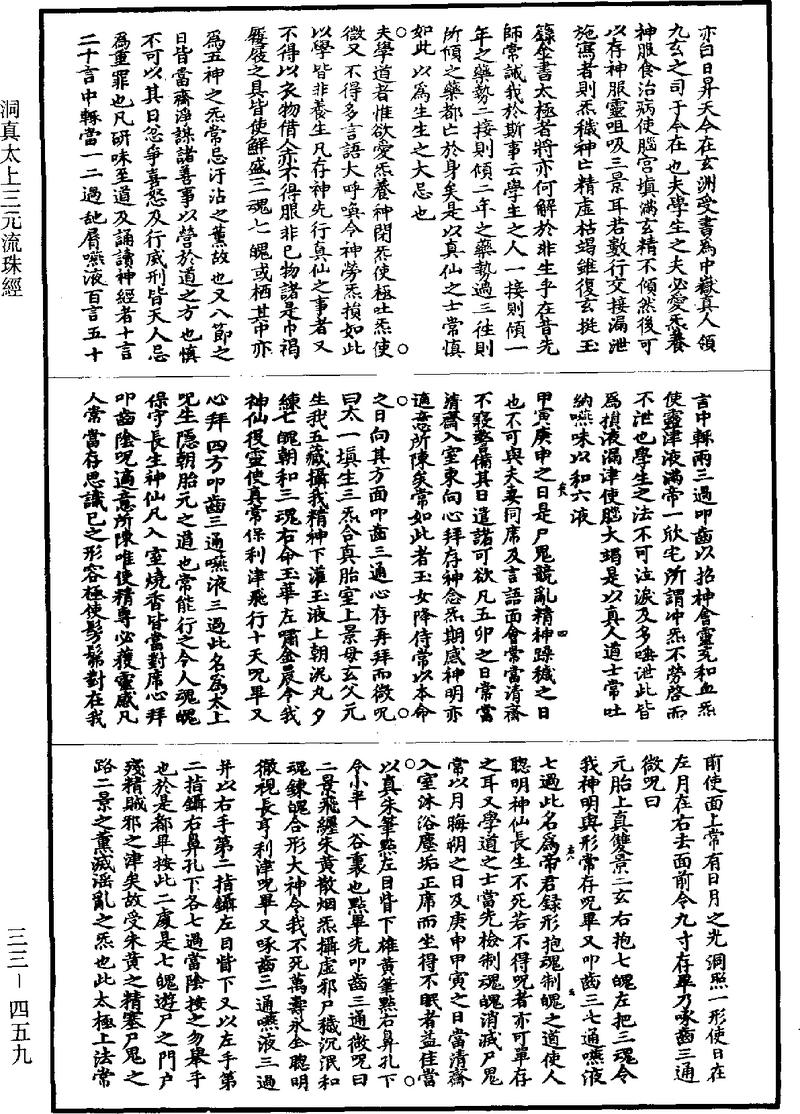 洞真太上三元流珠經
三三—四五九
亦白日昇天今在玄洲受書為中嶽真人領
九玄之司于今在也夫學生之夫必愛炁養
神服食治病使腦宮填滿玄精不傾然後可
以存神服靈咀吸三景耳若數行交接漏泄
施寫者則炁穢神亡精虛枯竭雖復玄挺玉
籙金書太極者將亦何解於非生乎在昔先
師常誡我於斯事云學生之人一接則傾一
年之藥勢二接則傾二年之藥勢過三往則
所傾之藥都亡於身矣是以真仙之士常慎
如此以為生生之大忌也
夫學道者惟欲愛炁養神閉炁使極吐炁使
微又不得多言語大呼喚令神勞炁損如此
以學皆非養生凡存神先行真仙之事者又
不得以衣物借人亦不得服非已物諸是巾褐
履屐之具皆使鮮盛三魂七魄或栖其中亦
為五神之炁常忌汙沾之薰故也又八節之
日皆當齋淨謀諸善事以營於道之方也慎
不可以其日忿爭喜怒及行威刑皆天人忌
為重罪也凡研味至道及誦讀神經者十言
二十言中輒當一二過舐屑嚥液百言五十
言中輒兩三過叩齒以招神會靈充和血炁
使靈津液滿帝一欣宅所謂冲炁不勞啓而
不泄也學生之法不可泣淚及多唾泄此皆
為損液漏津使腦大竭是以真人道士常吐
納嚥味以和六液
甲寅庚申之日是尸鬼競亂精神躁穢之日
也不可與夫妻同席及言語面會常當清齋
不寢警備其日遣諸可欲凡五卯之日常當
清齋入室東向心拜存神念炁期感神明亦
適意所陳矣常如此者玉女降侍常以本命
之日向其方面叩齒三通心存再拜而微呪
曰太一填生三炁合真胎室上景母玄父元
生我五藏攝我精神下灌玉液上朝泥丸夕
練七魄朝和三魂右命玉華左嘯金晨令我
神仙役靈使真常保利津飛行十天呪畢又
心拜四方叩齒三通嚥液三過此名為太上
呪生隱朝胎元之道也常能行之令人魂魄
保守長生神仙凡入室燒香皆當對席心拜
叩齒陰呪適意所陳唯使精專必獲靈感凡
人常當存思識已之形容極使髣髴對在我
前使面上常有日月之光洞照一形使日在
左月在右去面前令九寸存畢乃啄齒三通
微呪曰
元胎上真雙景二玄右抱七魄左把三魂令
我神明與形常存呪畢又叩齒三七通嚥液
七過此名為帝君錄形抱魂制魄之道使人
聰明神仙長生不死若不得呪者亦可單存
之耳又學道之士當先檢制魂魄消滅尸鬼
常以月晦朔之日及庚申甲寅之日當清齋
入室沐浴塵垢正席而坐得不眠者益佳當
以真朱筆點左目眥下雄黃筆點右鼻孔下
令小半入谷裏也點畢先叩齒三通微呪曰
二景飛纏朱黃散烟炁攝虛邪尸穢沉泯和
魂鍊魄合形大神令我不死萬壽永全聰明
徹視長享利津呪畢又啄齒三通嚥液三過
并以右手第二指躡左目眥下又以左手第
二指躡右鼻孔下各七過當陰按之勿舉手
也於是都畢按此二處是七魄遊尸之門戶
殘精賊邪之津矣故受朱黃之精塞尸鬼之
路二景之薰滅淫亂之炁也此太極上法常